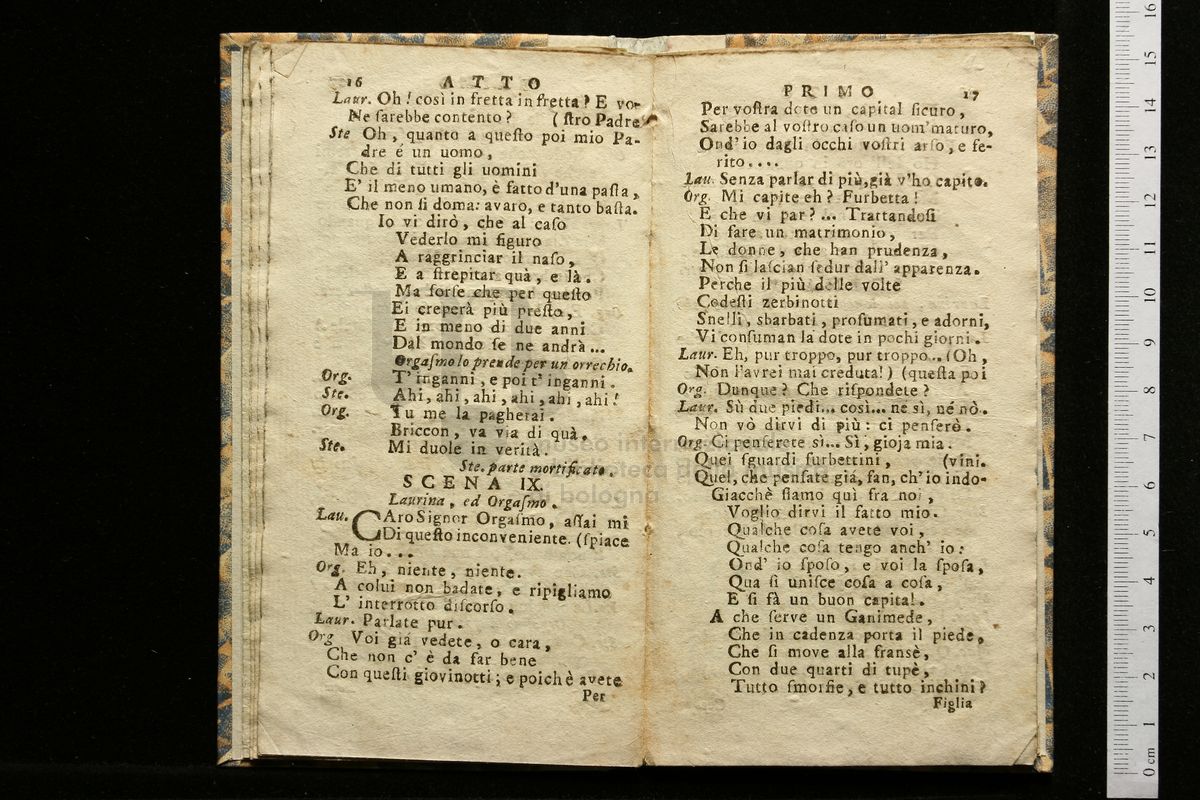 16 ATTO
Laur. Oh! così in fretta in fretta? E vo-
Ne sarebbe contento? (stro Padre
Ste Oh, quanto a questo poi mio Pa-
dre é un uomo,
Che di tutti gli uomini
E' il meno umano, è fatto d'una pasta,
Che non si doma: avaro, e tanto basta.
Io vi dirò, che al caso
Vederlo mi figuro
A raggrinciar il naso,
E a strepitar quà, e là.
Ma forse che per questo
Ei creperà più presto,
E in meno di due anni
Dal mondo se ne andrà...
Orgasmo lo prende per un orrechio.
Org. T'inganni, e poi t'inganni.
Ste. Ahi, ahi, ahi, ahi, ahi, ahi!
Org. Tu me la pagherai.
Briccon, va via di quà.
Ste. Mi duole in verità.
Ste. parte mortificato.
SCENA IX.
Laurina, ed Orgasmo.
Lau. CAro Signor Orgasmo, assai mi
Di questo inconveniente. (spiace
Ma io...
Org. Eh, niente, niente.
A colui non badate, e ripigliamo
L'interrotto discorso.
Laur. Parlate pur.
Org Voi giá vedete, o cara,
Che non c'è da far bene
Con questi giovinotti; e poichè avete
Per
PRIMO 17
Per vostra dote un capital sicuro,
Sarebbe al vostro caso un uom'maturo,
Ond'io dagli occhi vostri arso, e fe-
rito....
Lau. Senza parlar di più, già v'ho capito.
Org. Mi capite eh? Furbetta!
E che vi par?... Trattandosi
Di fare un matrimonio,
Le donne, che han prudenza,
Non si lascian sedur dall'apparenza.
Perche il più delle volte
Codesti zerbinotti
Snelli, sbarbati, profumati, e adorni,
Vi consuman la dote in pochi giorni.
Laur. Eh, pur troppo, pur troppo.. (Oh,
Non l'avrei mai creduta!) (questa poi
Org. Dunque? Che rispondete?
Laur. Sù due piedi... così... ne sì, né nò.
Non vò dirvi di più: ci penserò.
Org. Ci penserete sì... Sì, gioja mia.
Quei sguardi furbettini, (vini.
Quel, che pensate giá, fan, ch'io indo-
Giacchè siamo quì fra noi,
Voglio dirvi il fatto mio.
Qualche cosa avete voi,
Qualche cosa tengo anch'io:
Ond'io sposo, e voi la sposa,
Qua si unisce cosa a cosa,
E si fà un buon capital.
A che serve un Ganimede,
Che in cadenza porta il piede,
Che si move alla fransè,
Con due quarti di tupè,
Tutto smorfie, e tutto inchini?
Figlia